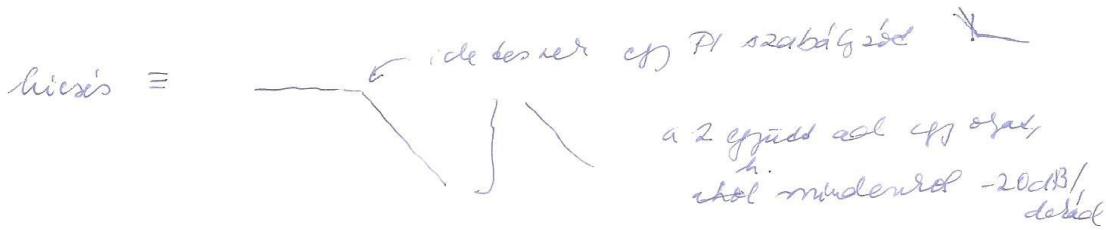 ide teszek egy PI szabályzót
kiesés ≡
a 2 együtt ad egy olyat,
h.
ahol mindenhol -20dB/
dekád